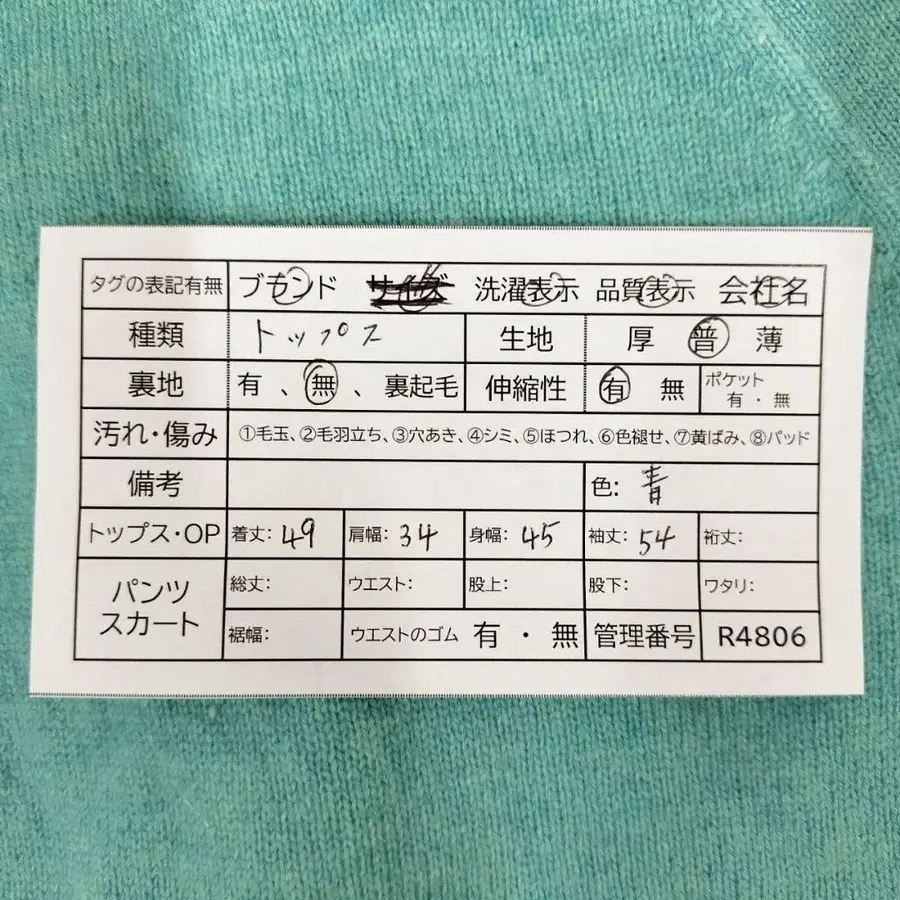 タグの表記有無 ブランド サイズ 洗濯表示 品質表示 会社名
種類 トップス 生地 厚 普 薄
裏地 有 、 無 、 裏起毛 伸縮性 有 無 ポケット 有 ・ 無
汚れ・傷み ①毛玉、②毛羽立ち、③穴あき、④シミ、⑤ほつれ、⑥色褪せ、⑦黄ばみ、⑧パッド
備考 色: 青
トップス・OP 着丈: 49 肩幅: 34 身幅: 45 袖丈: 54 裄丈:
パンツ スカート 総丈: ウエスト: 股上: 股下: ワタリ:
裾幅: ウエストのゴム 有 ・ 無 管理番号 R4806